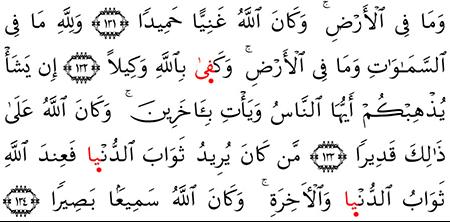 وَمَا فِى ٱلْأَرْضِ ۚ وَكَانَ ٱللَّهُ غَنِيًّا حَمِيدًا ﴿١٣١﴾ وَلِلَّهِ مَا فِى
ٱلسَّمَـٰوَٰتِ وَمَا فِى ٱلْأَرْضِ ۚ وَكَفَىٰ بِٱللَّهِ وَكِيلًا ﴿١٣٢﴾ إِن يَشَأْ
يُذْهِبْكُمْ أَيُّهَا ٱلنَّاسُ وَيَأْتِ بِـَٔاخَرِينَ ۚ وَكَانَ ٱللَّهُ عَلَىٰ
ذَٰلِكَ قَدِيرًا ﴿١٣٣﴾ مَّن كَانَ يُرِيدُ ثَوَابَ ٱلدُّنْيَا فَعِندَ ٱللَّهِ
ثَوَابُ ٱلدُّنْيَا وَٱلْـَٔاخِرَةِ ۚ وَكَانَ ٱللَّهُ سَمِيعًۢا بَصِيرًا ﴿١٣٤﴾